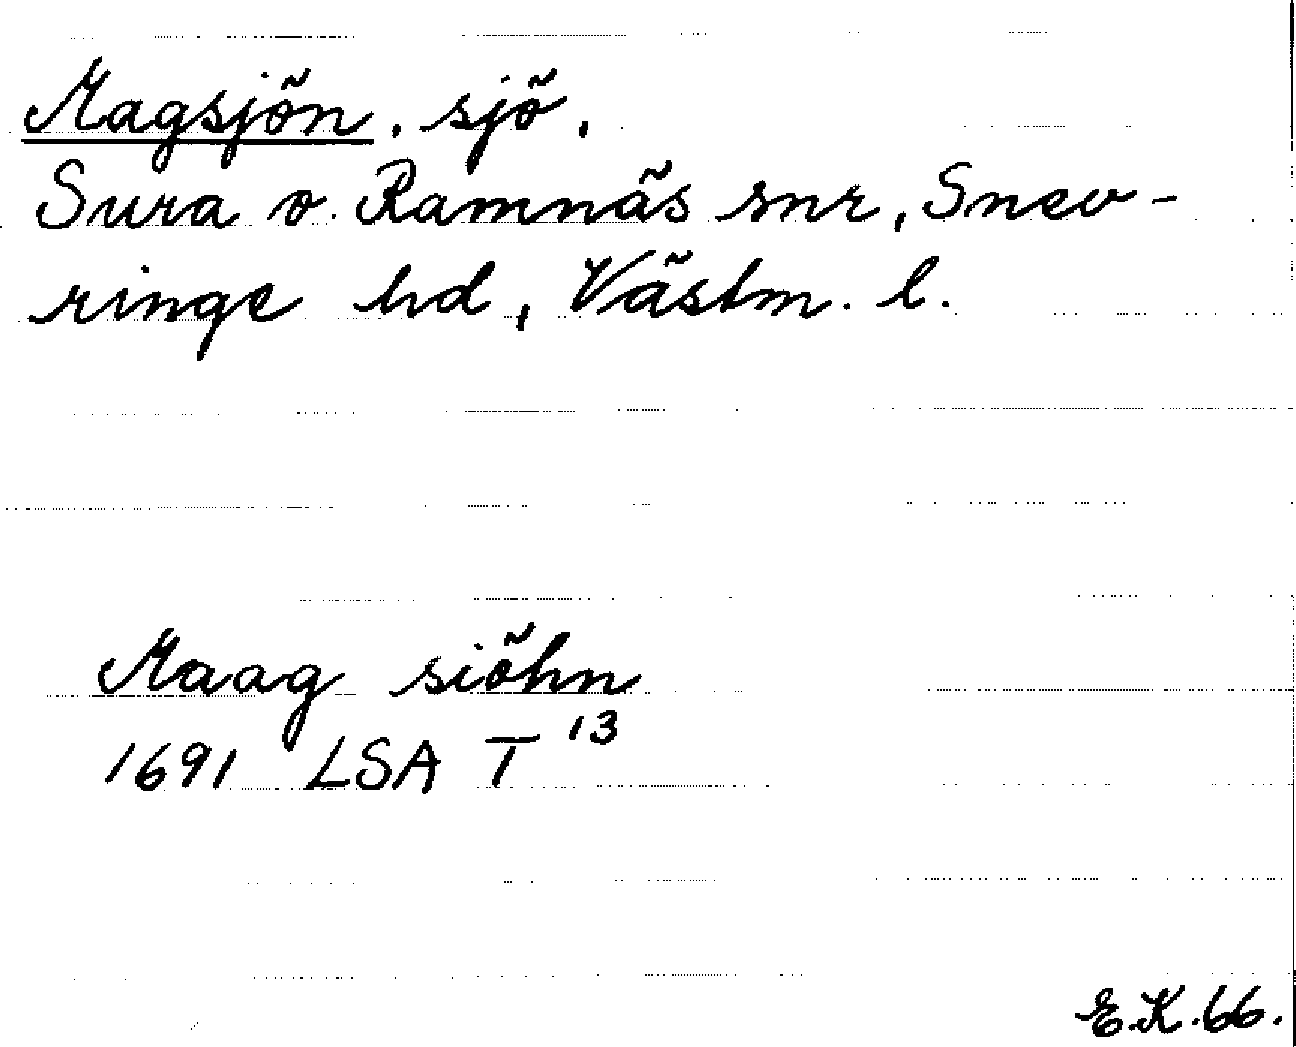 Magsjön, sjö,
Sura o. Ramnäs snr, Snev-
ringe hd, Västm. l.
Maag siöhn
1691 LSA T 13
E.K. 66.